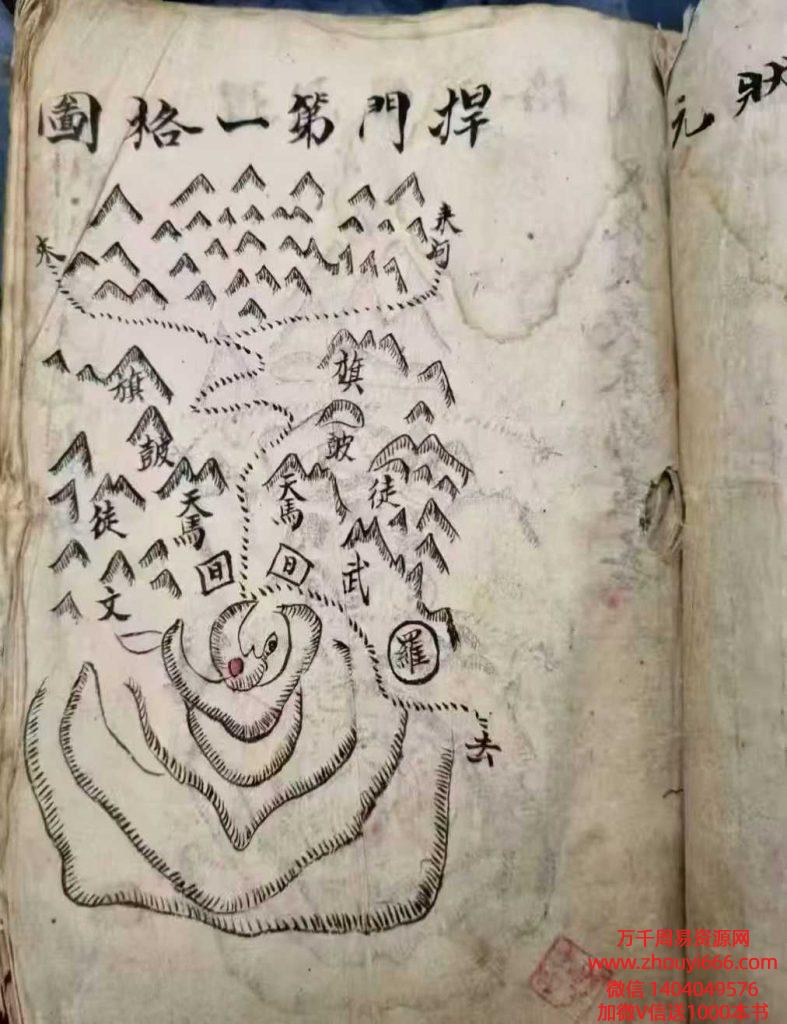 捍門第一格圖
狀元
来向
来
旗
旗
皷
皷
天馬
天馬
徒
徒
日
日
武
文
羅
去
万千周易资源网
www.zhouyi666.com
微信 1404049576
加微V信送1000本书